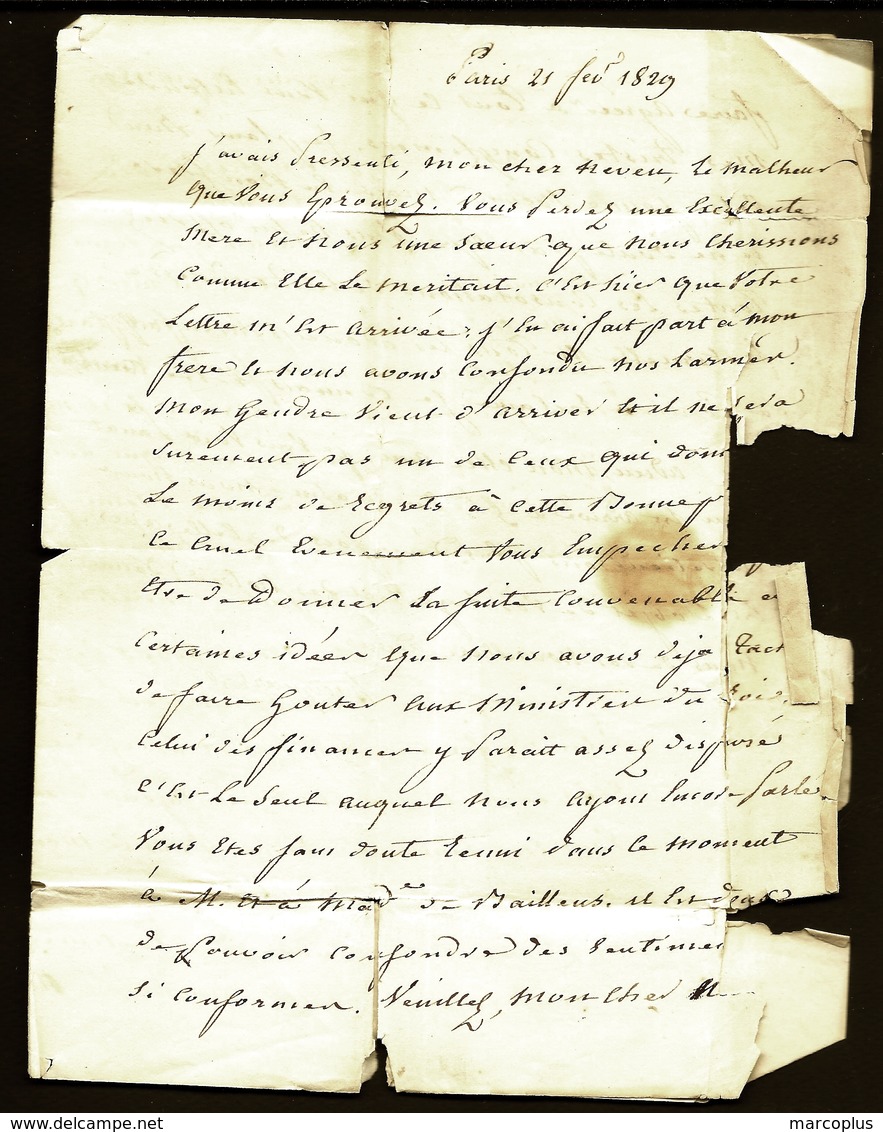 Paris 21 fevr 1829
J'avais Pressenti, mon cher neveu, le malheur
que vous Eprouvez. Vous Perdez une Excellente
mere et nous une sœur que nous cherissions
comme Elle le meritait. C'est hier que votre
Lettre m'est arrivée; j'en ai fait part à mon
frere et nous avons confondu nos larmes.
mon gendre vient d'arriver et il ne sera
surement pas un de ceux qui don
le moins de regrets à cette Bonne
ce cruel Evenement vous Empecher
Etre de donner la suite convenable
certaines idées que nous avons deja
de faire gouter aux Ministres du Roi.
celui des finances y Parait assez disposé
c'est le seul auquel nous ayons Encore Parlé.
Vous Etes sans doute reuni dans le moment
à M. et à Made de Bailleus. il est doux
de Pouvoir confondre des sentimen
si conformes. Veuillez, mon cher
marcoplus